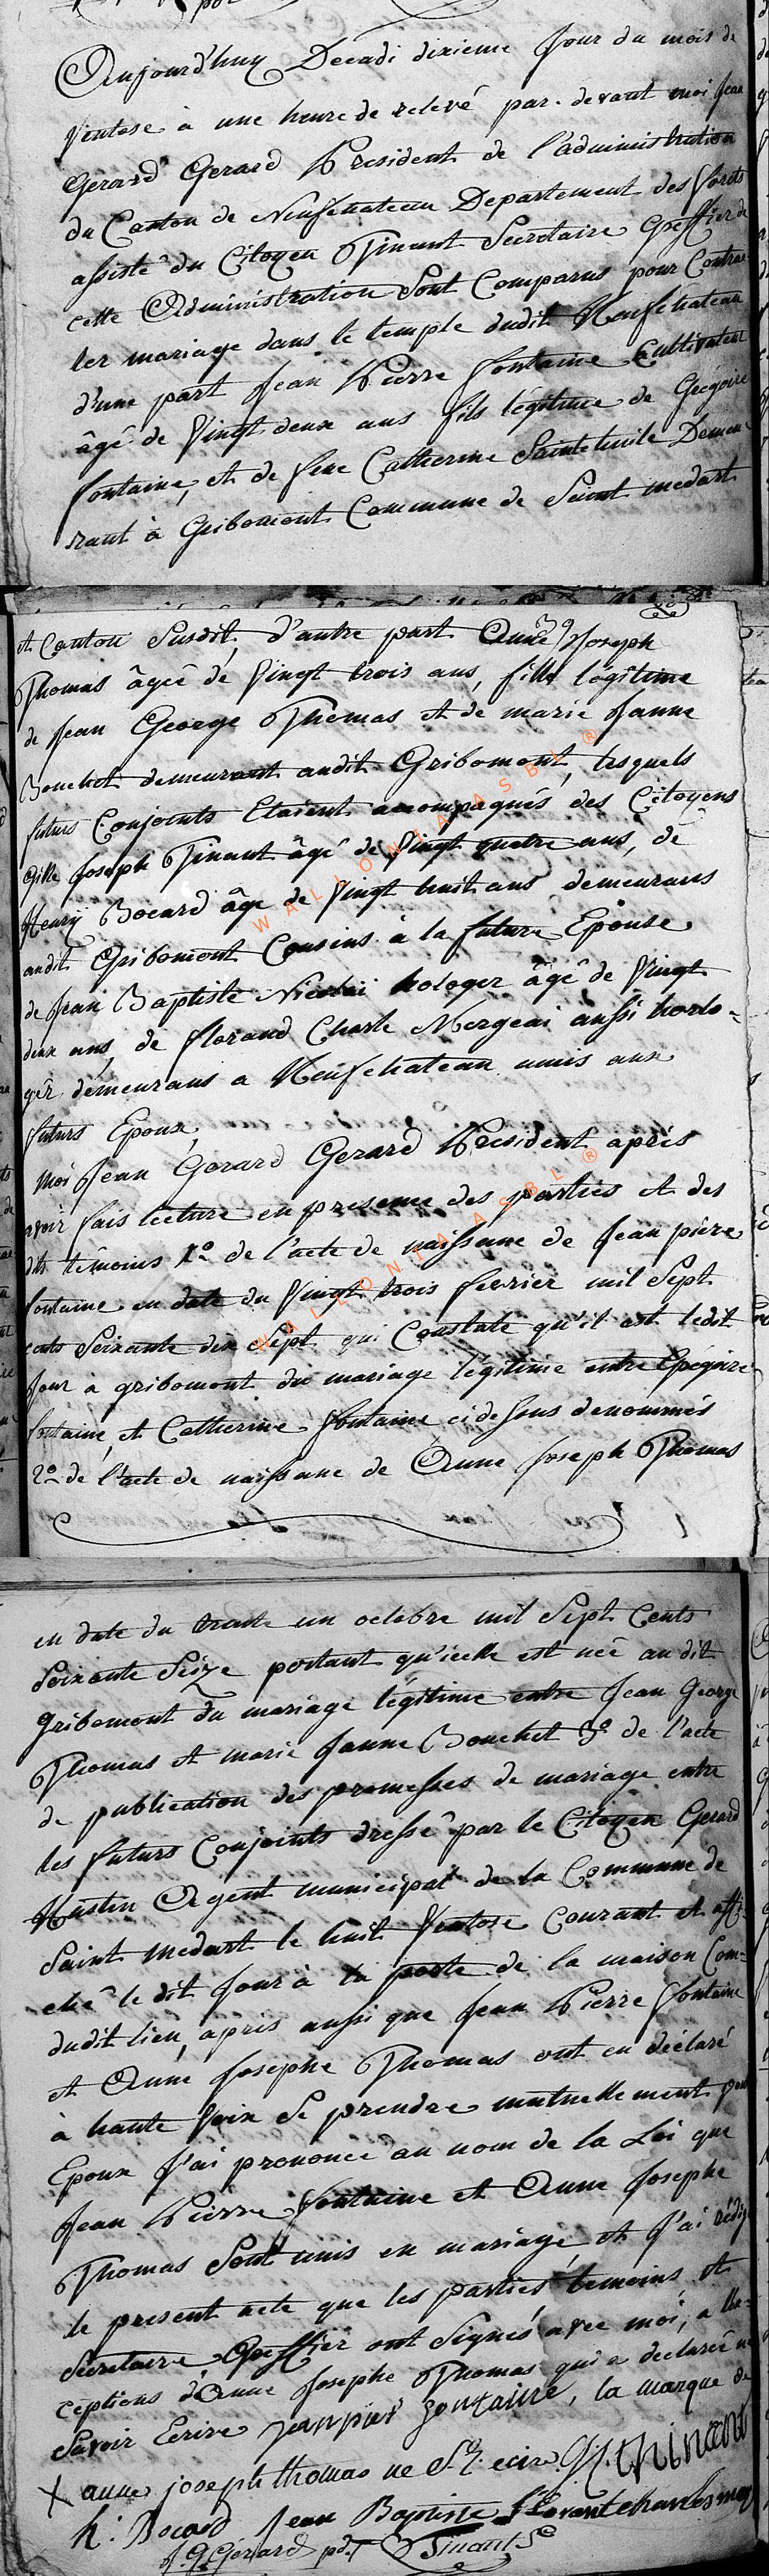 Aujourd'huy Decadi dixieme jour du mois de
Ventose à une heure de relevé par devant moi Jean
Gerard Gerard President de l'administration
du Canton de Neufchateau Departement des forets
assisté du Citoyen Tinant Secretaire Greffier de
cette Administration Sont Comparus pour Contrac
ter mariage dans le temple dudit Neufchateau
d'une part Jean Pierre fontaine Cultivateur
âgé de Vingt deux ans fils légitime de Grégoire
fontaine, et de feue Catherine Demeu
rant à Gribomont Commune de Saint medart
et Canton Susdit, d'autre part Anne Joseph
Thomas âgée de Vingt trois ans, fille légitime
de Jean George Thomas et de marie Janne
Bouchet demeurant audit Gribomont, lesquels
futurs Conjoints Etaient accompagnés des Citoyens
Gille Joseph Tinant âgé de Vingt quatre ans, de
Henry Bocard âge de Vingt huit ans demeurans
audit Gribomont Cousins à la future Epouse
de Jean Baptiste Nicolai hologer âgé de Vingt
deux ans, de florand Charle Mergeai aussi horlo=
gér demeurans a Neufchateau amis aux
futurs Epoux,
Moi Jean Gerard Gerard President après
avoir fais lecture en presence des parties et des
dits témoins 1º de l'acte de naissance de Jean pière
fontaine en date du Vingt trois fevrier mil Sept
cents Seixante dix Sept qui Constate qu'il est ledit
Jour à gribomont du mariage légitime entre Grégoire
fontaine, et Catherine fontaine ci dessus denommés
2º de l'acte de naissance de Anne Joseph Thomas
en date du trente un octobre mil Sept Cents
Soixante Seize portant qu'icelle est neé au dit
Gribomont du mariage légitime entre Jean George
Thomas et marie Janne Bouchet 3º de l'acte
de publication des promesses de mariage entre
les futurs Conjoints dressé par le Citoyen Gerard
Hustin Agent municipal de la Commune de
Saint medart le huit Ventose Courant et affi=
ché le dit Jour à la porte de la maison Com=
dudit lieu, après aussi que Jean Pierre fontaine
et Anne Josephe Thomas ont eu déclaré
à haute Voix Se prendre mutuellement pour
Epoux J'ai prononcé au nom de la Loi que
Jean Pierre fontaine et Anne Josephe
Thomas Sont unis en mariage, et J'ai rédigé
le present acte que les parties temoins et
Secretaire Greffier ont Signés avec moi, a l'ex=
ceptions d'Anne Josephe Thomas qui a declareé ne
Savoir Ecrire Jean pier fontaine, la marque de
X anne joseph thomas ne ecire G J thinant
h: Bocard Jean Baptiste
J. G. Gérard pdt Tinant Sre
WALLONIA ASBL ®
WALLONIA ASBL ®